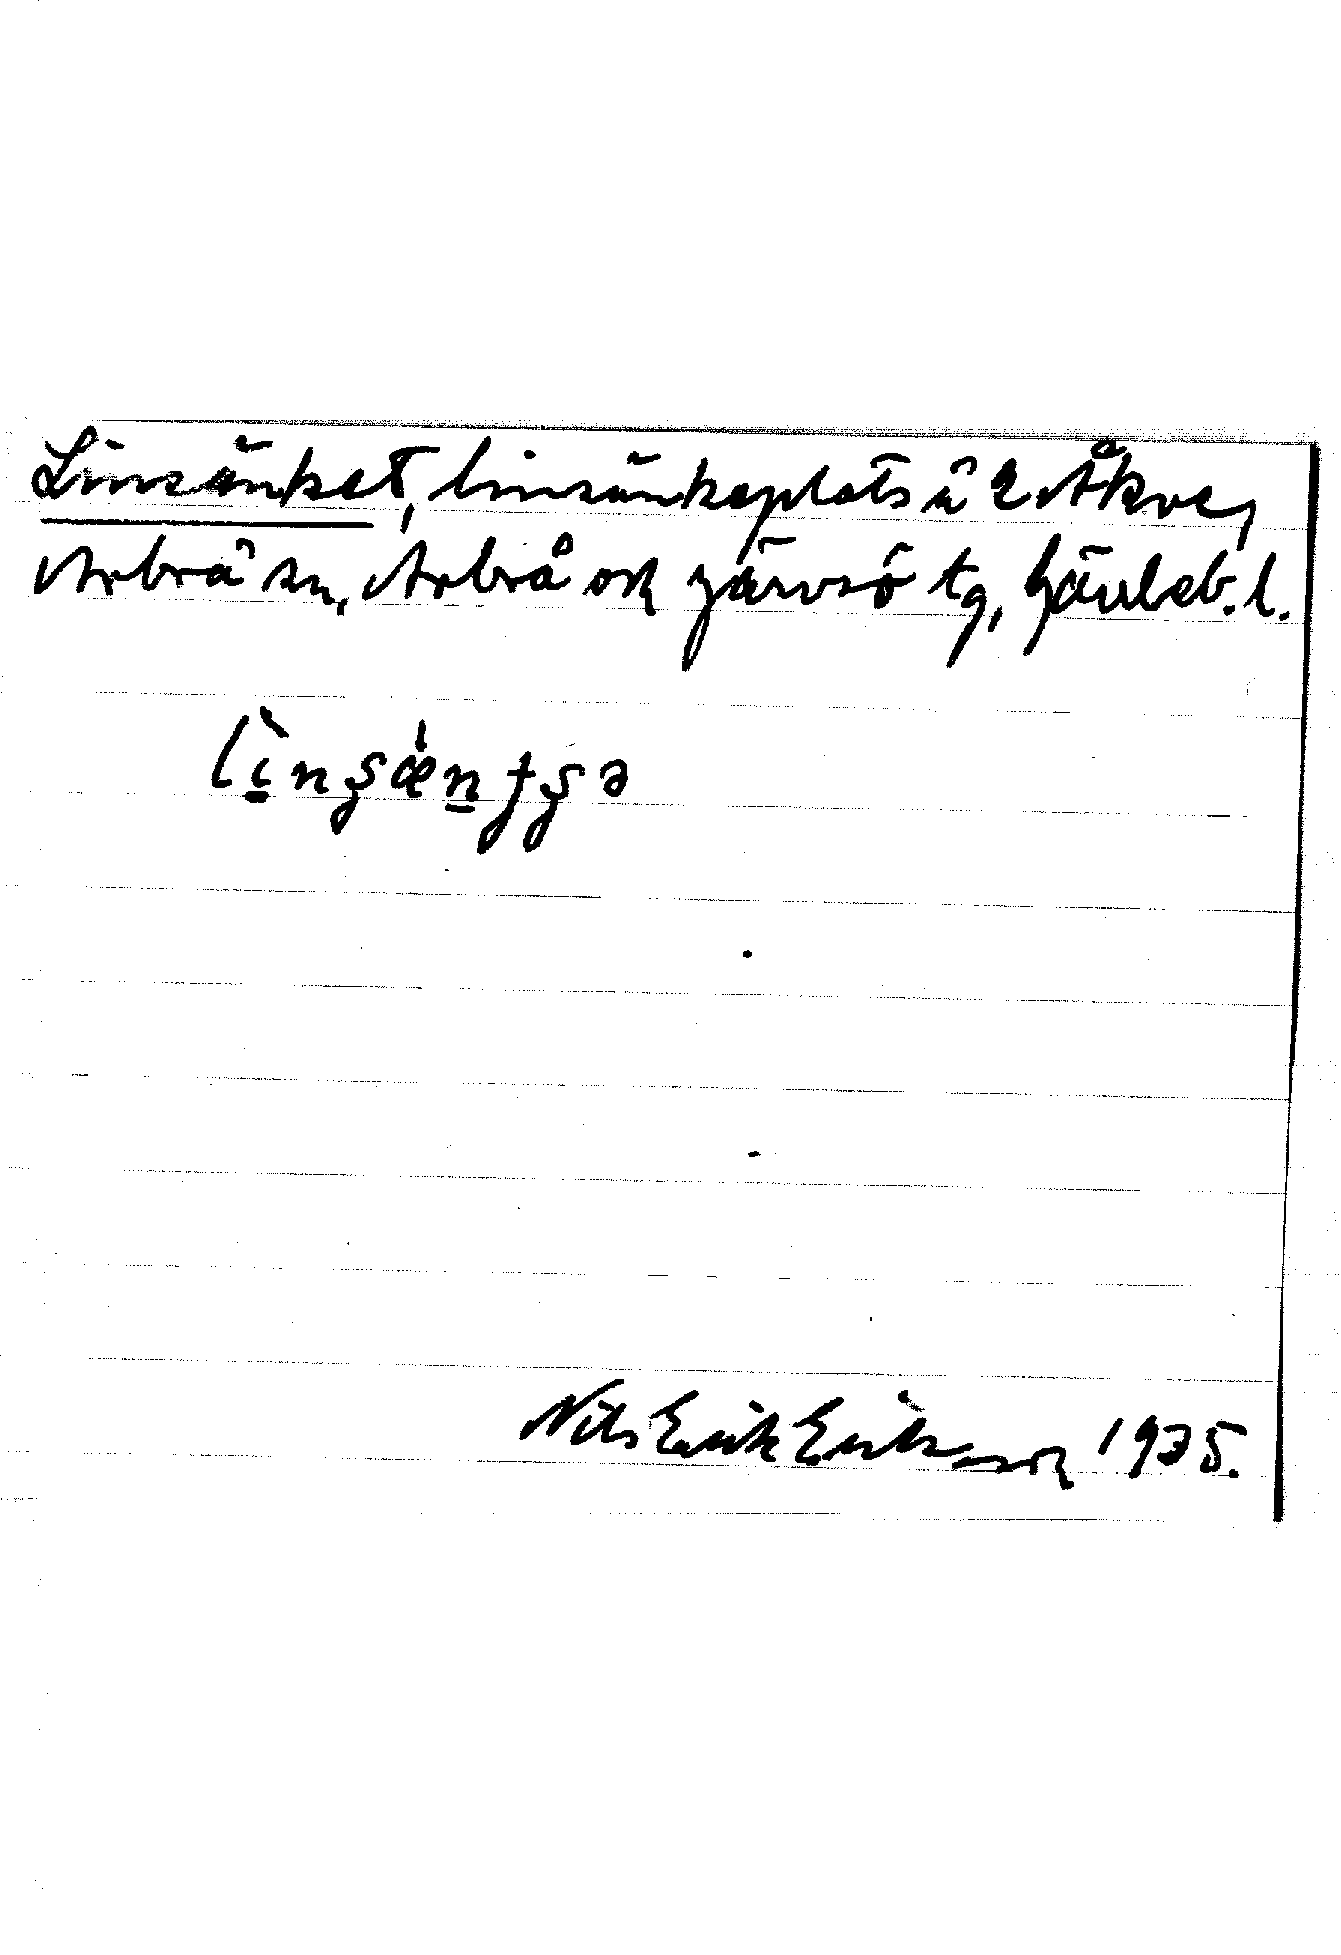 Linsänket, linsänkeplats å 2 Åkre,
Arbrå sn, Arbrå och Järvsö tg, Gävleb. l.
Nils Erik Eriksson 1935.